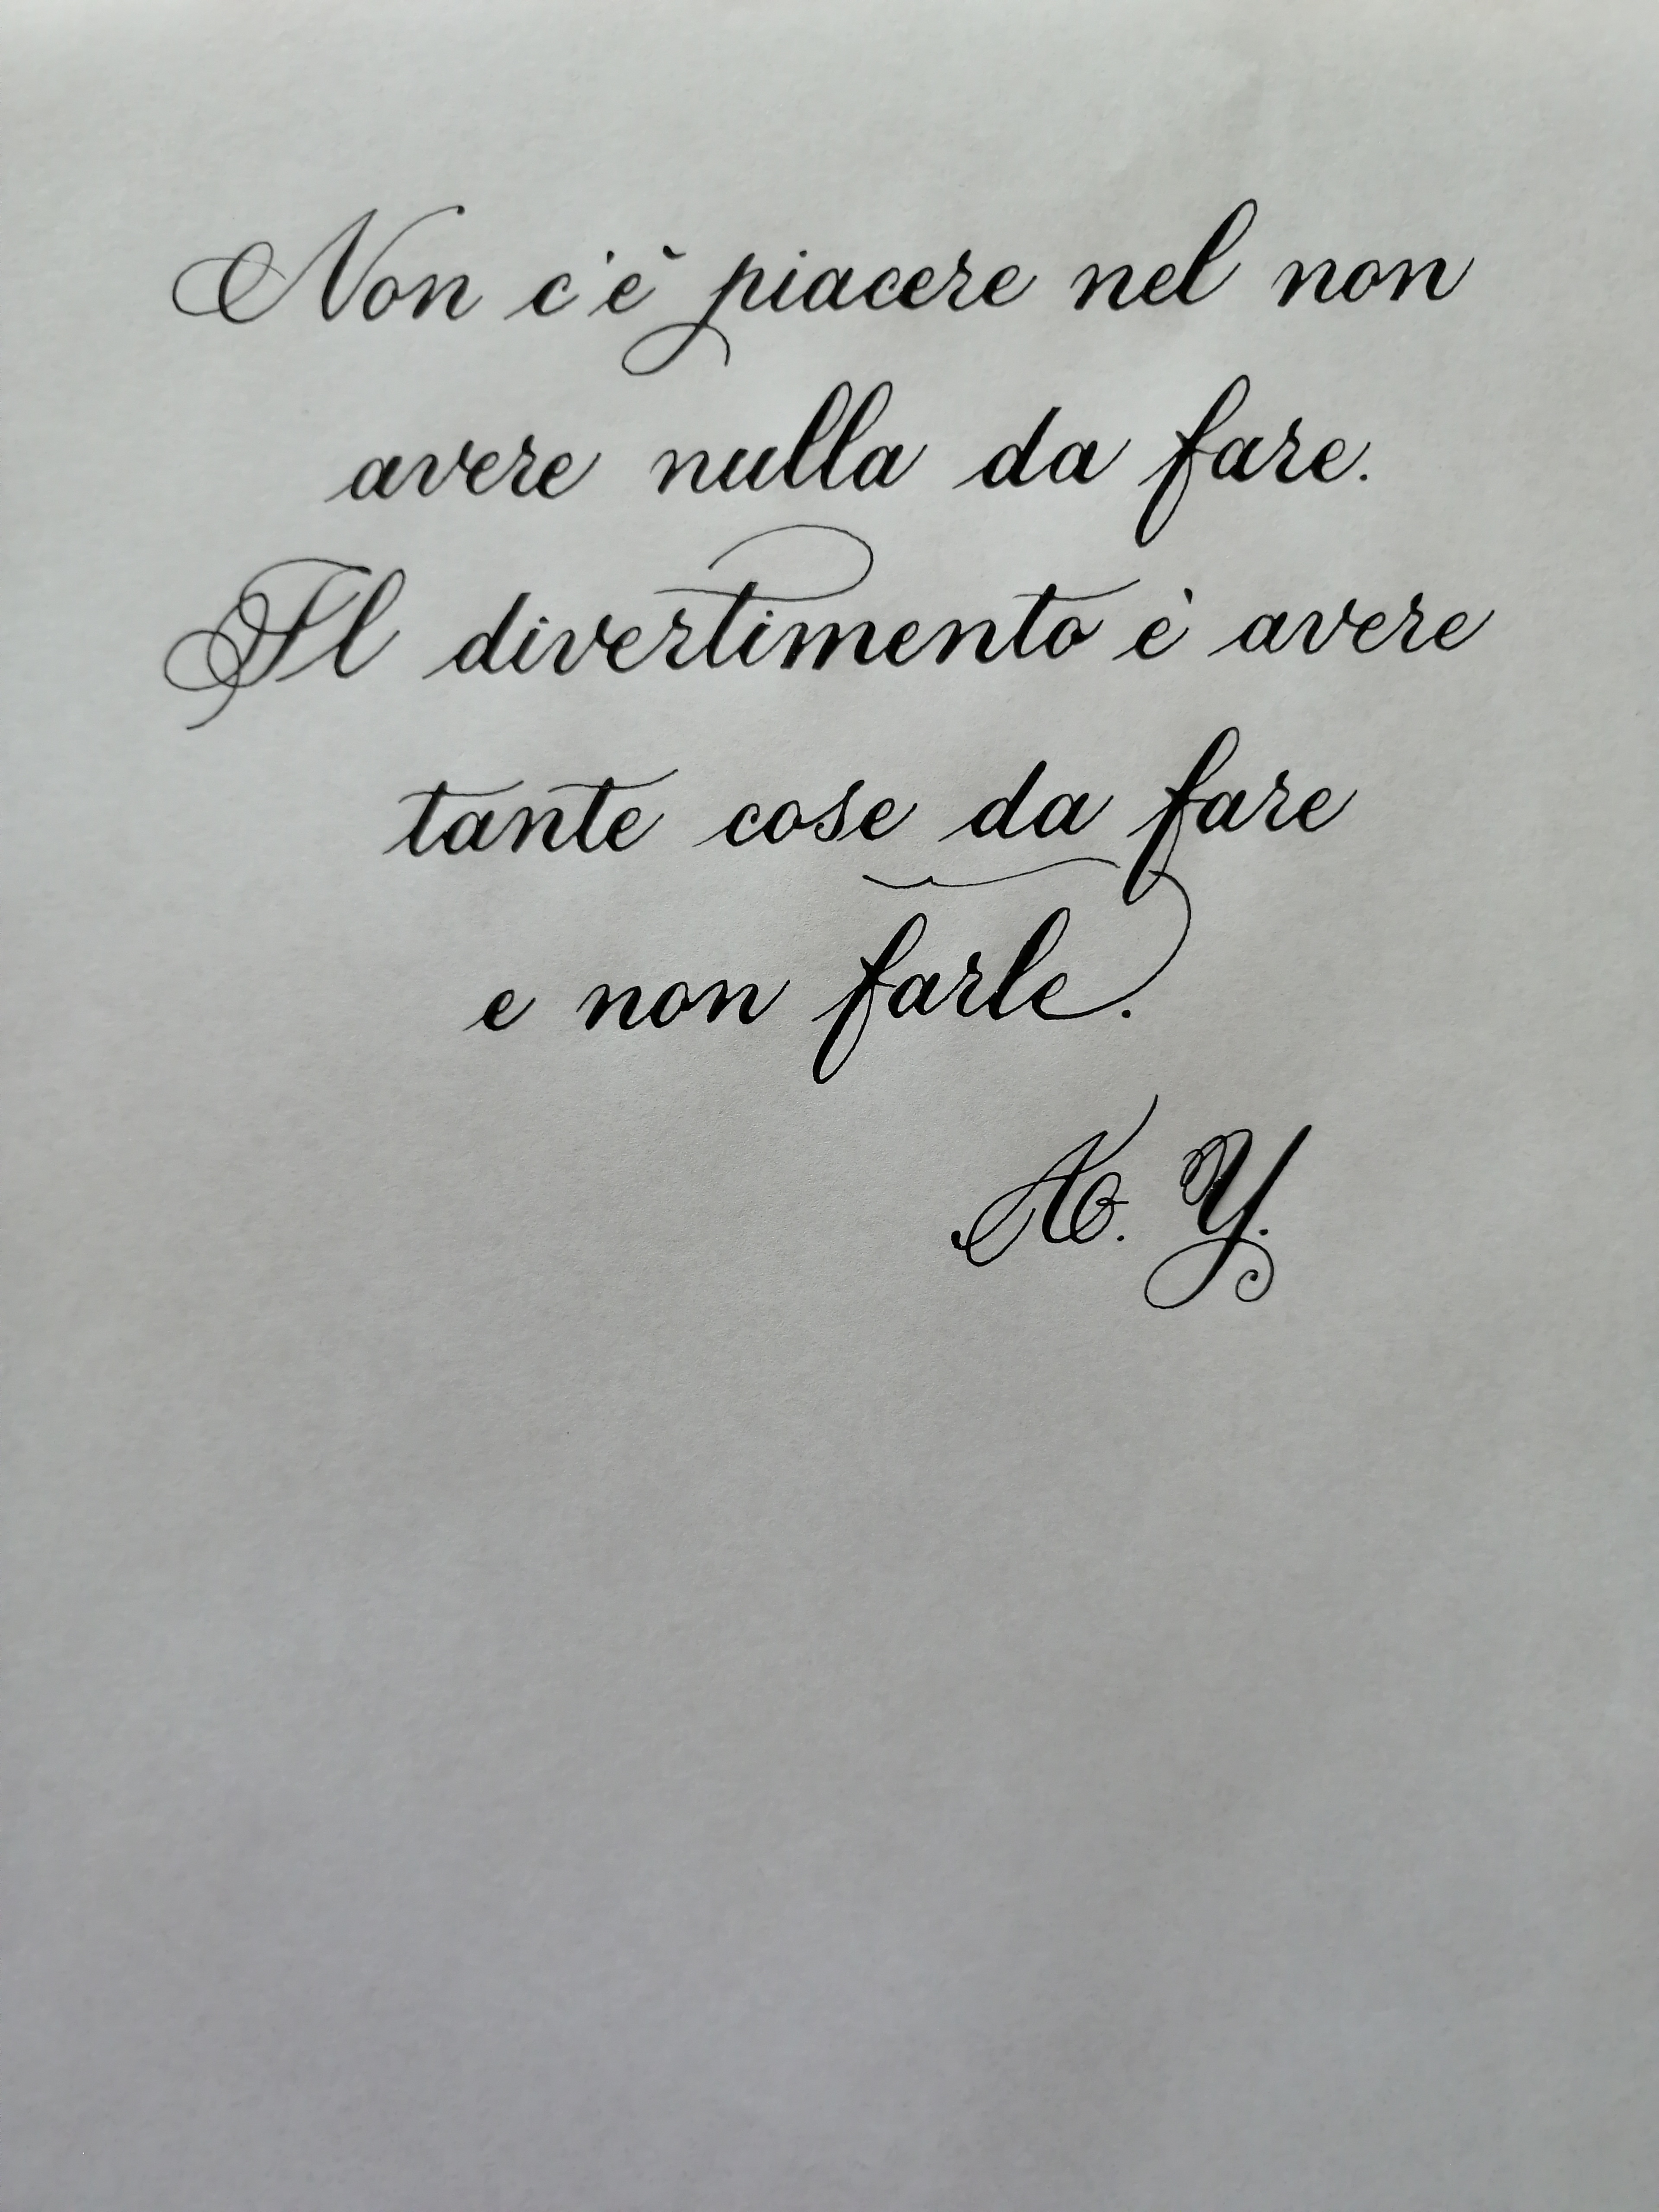 Non c'è piacere nel non
avere nulla da fare.
Il divertimento è avere
tante cose da fare
e non farle.
A. Y.